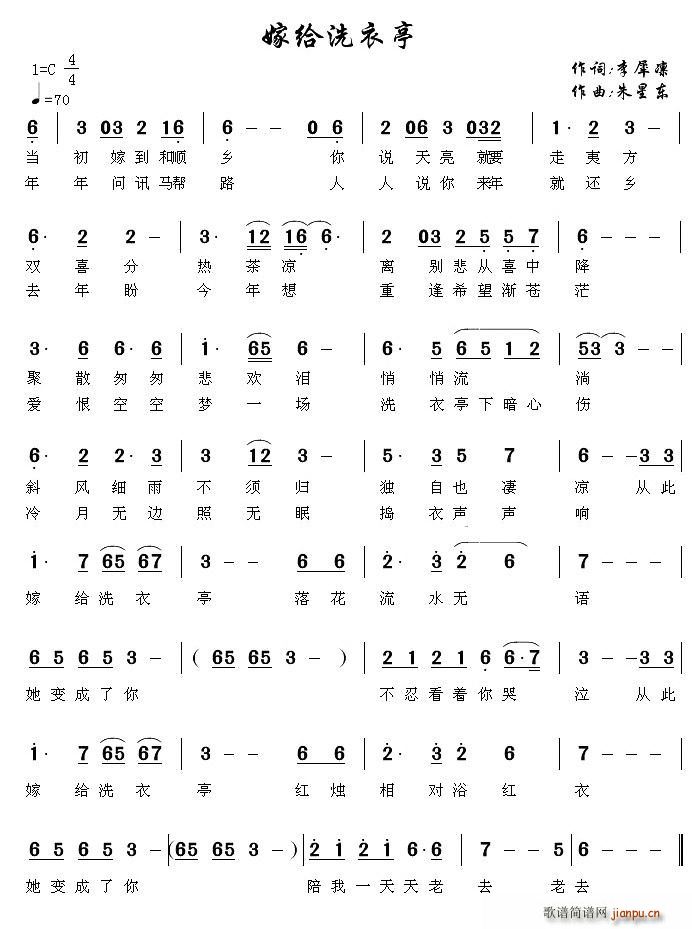 嫁给洗衣亭
1=C 4/4
作词:李犀凛
♩=70
作曲:朱星东
6 | 3 03 2 16 | 6 - - 0 6 | 2 06 3 032 | 1· 2 3 - |
当 初 嫁 到 和顺 乡 你 说 天 亮 就要 走 夷 方
年 年 问 讯 马帮 路 人 人 说 你 来年 就 还 乡
6· 2 2 - | 3· 12 16· 6· | 2 03 2 5 5 7 | 6 - - - |
双 喜 分 热 茶 凉 离 别 悲 从 喜 中 降
去 年 盼 今 年 想 重 逢 希 望 渐 苍 茫
3· 6 6· 6 | 1· 65 6 - | 6· 5 6 5 1 2 | 533 - - |
聚 散 匆 匆 悲 欢 泪 悄 悄 流 淌
爱 恨 空 空 梦 一 场 洗 衣 亭 下 暗 心 伤
6· 2 2· 3 | 3 12 3 - | 5· 3 5 7 | 6 - - 3 3 |
斜 风 细 雨 不 须 归 独 自 也 凄 凉 从 此
冷 月 无 边 照 无 眠 捣 衣 声 声 响
1· 7 65 67 | 3 - - 6 6 | 2· 3 2 6 | 7 - - - |
嫁 给 洗 衣 亭 落 花 流 水 无 语
6 5 6 5 3 - | ( 65 65 3 - ) | 2 1 2 1 6 6·7 | 3 - - 3 3 |
她 变 成 了 你 不 忍 看 着 你 哭 泣 从 此
1· 7 65 67 | 3 - - 6 6 | 2· 3 2 6 | 7 - - - |
嫁 给 洗 衣 亭 红 烛 相 对 浴 红 衣
6 5 6 5 3 - | (65 65 3 - ) | 2 1 2 1 2 6·6 | 7 - - 5 | 6 - - - |
她 变 成 了 你 陪 我 一 天 天 老 去 老 去
歌谱简谱网
jianpu.cn